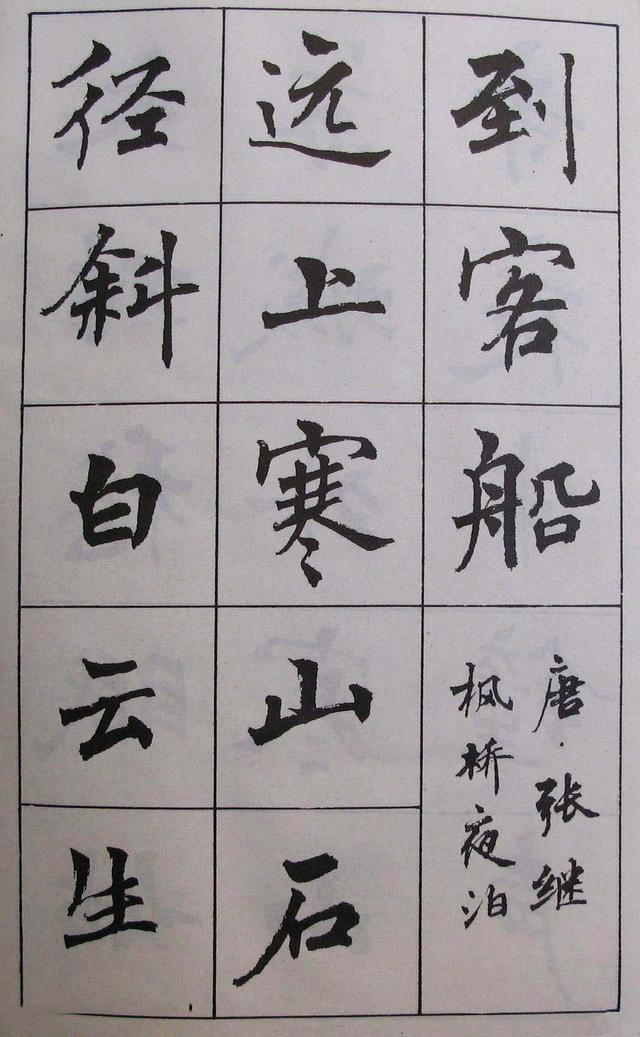 到客船
唐·张继
枫桥夜泊
远上寒山石
径斜白云生